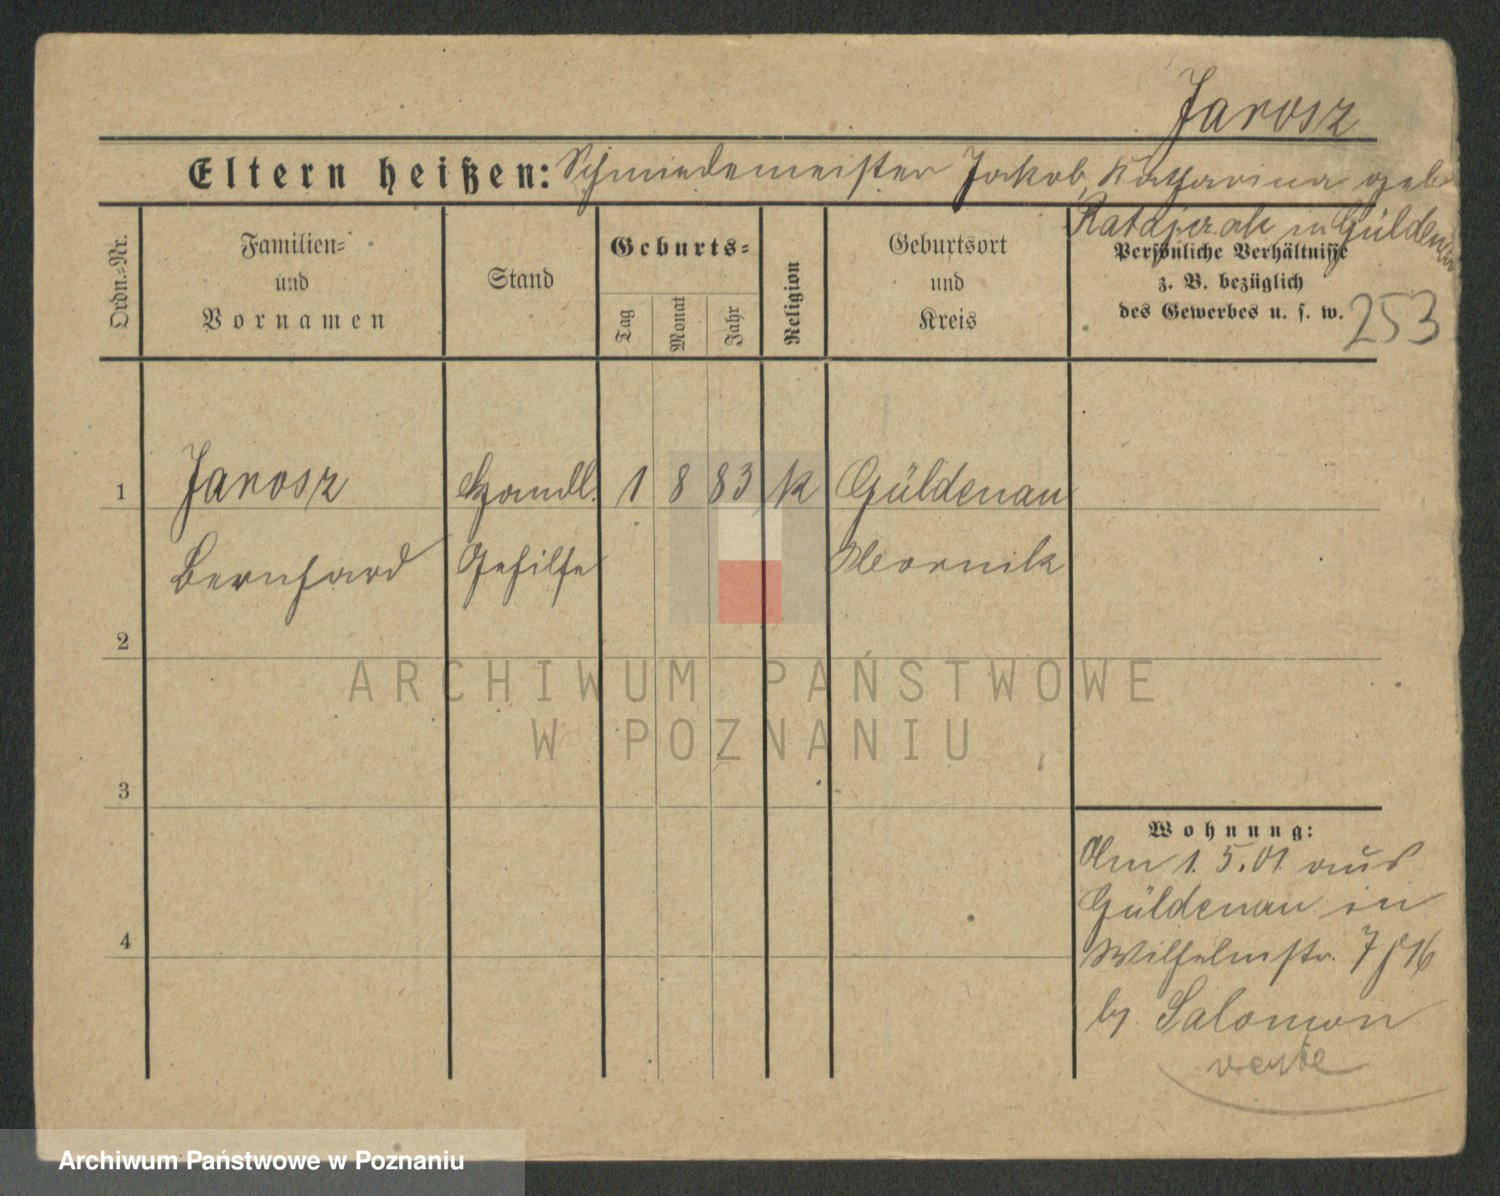 Jarosz
Eltern heißen: Schmiedemeister Jakob, Katharina geb
Ratajczak in Güldenau
Ordn.-Nr.
Familien-
und
Vornamen
Stand
Geburts-
Tag
Monat
Jahr
Religion
Geburtsort
und
Kreis
Persönliche Verhältnisse
z. B. bezüglich
des Gewerbes u. s. w.
253
1 Jarosz Handl. 1 8 83 k Güldenau
Bernhard Gehilfe
2
ARCHIWUM PAŃSTWOWE
W POZNANIU
3
Wohnung:
Am 1.5.01 aus
Güldenau in
4
Wilhelmstr. 7 / 16
by Salomon
Archiwum Państwowe w Poznaniu